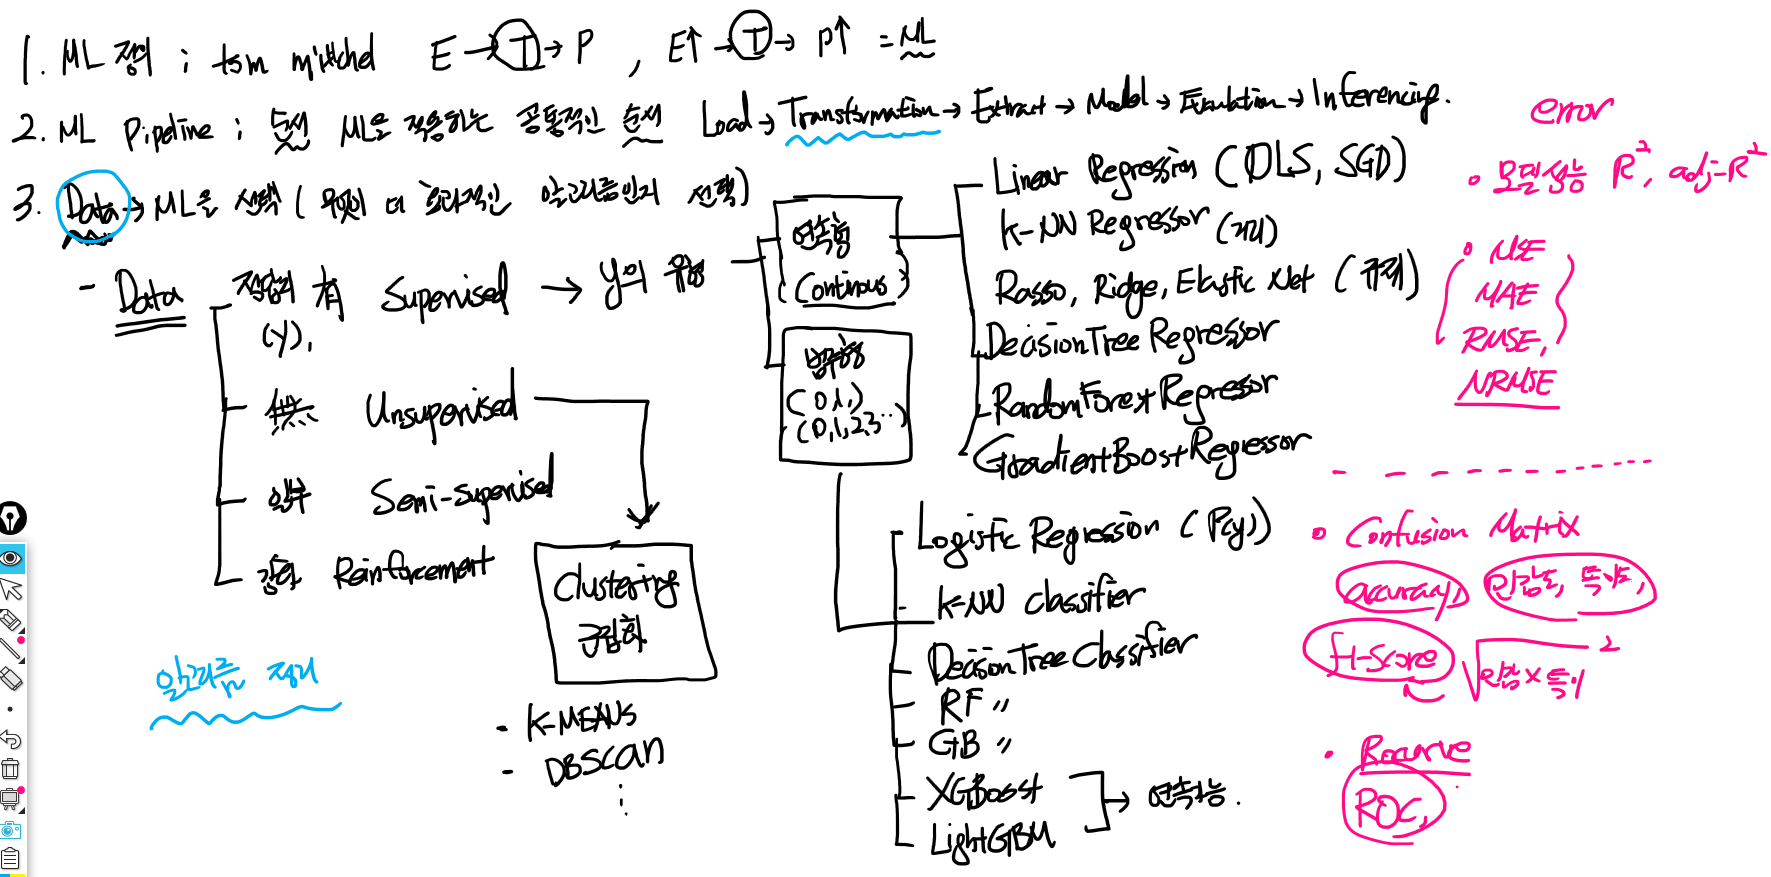 1. ML 정의 ; tom mitchel E → T → P , E↑ → T → P↑ = ML
2. ML Pipeline ; 순서 ML을 적용하는 공통적인 순서 Load → Transformation → Extract → Model → Evaluation → Inferencing.
3. Data → ML을 선택 ( 무엇이 더 효과적인 알고리즘인지 선택)
- Data
정답지 有 Supervised → y의 유형
(y).
無 Unsupervised
일부 Semi-supervised
강화 Reinforcement
Clustering
군집화
- K-MEANS
- DBSCAN
알고리즘 정리
연속형
(Continous)
범주형
(0,1,)
(0,1,2,3..)
Linear Regression (OLS, SGD)
K-NN Regressor (거리)
Rasso, Ridge, Elastic Net (규제)
DecisionTree Regressor
RandomForest Regressor
GradientBoost Regressor
Logistic Regression (P(y))
K-NN classifier
DecisionTree Classifier
RF "
GB "
XGBoost
LightGBM
→ 연속가능.
error
• 모델성능 R², adj-R²
• MSE
MAE
RMSE,
NRMSE
• Confusion Matrix
accuracy, 민감도, 특이도,
f1-score √민감×특이 2
• Rocurve
ROC,